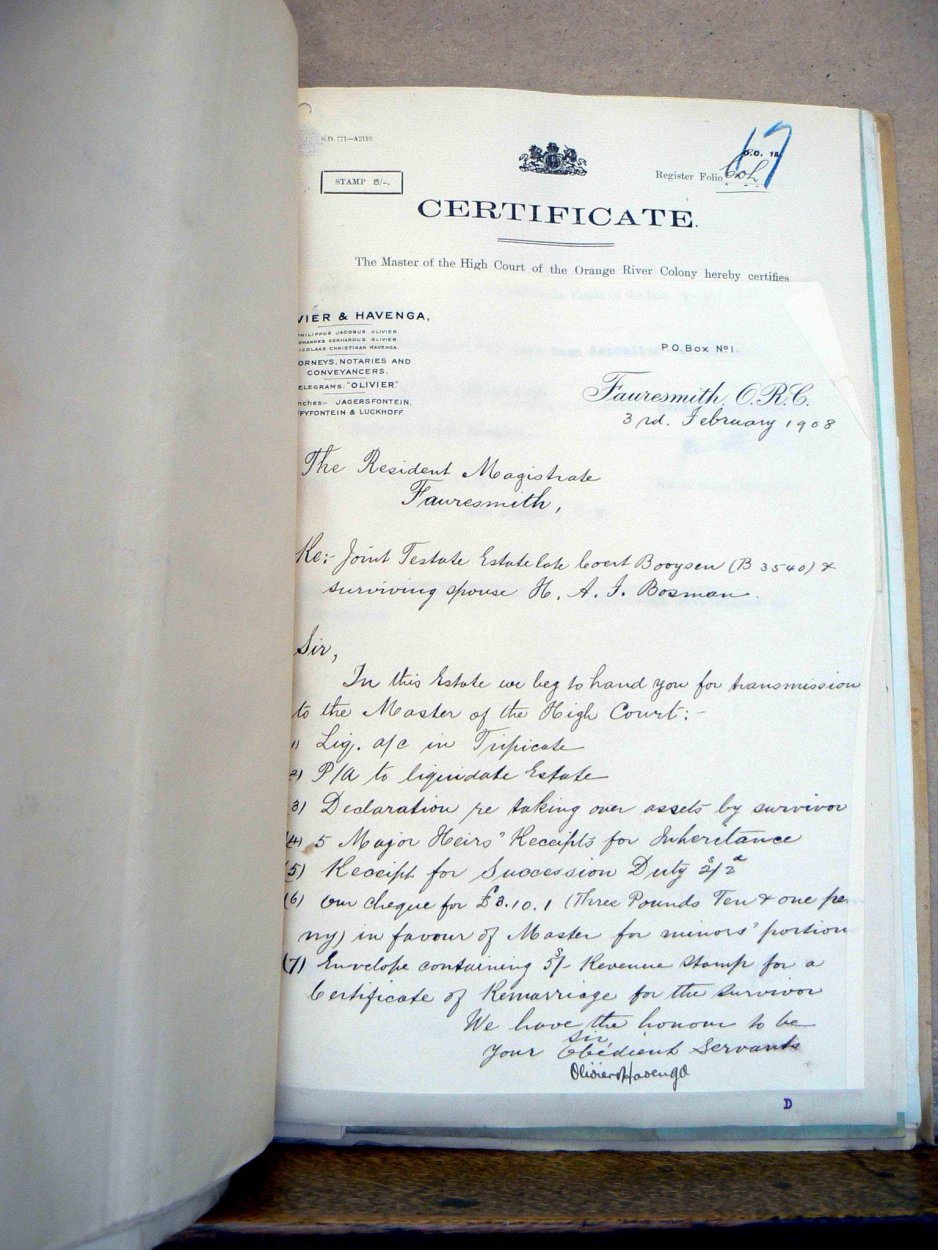 S.D. 771—A2110
17
O.C. 18
STAMP 5/-.
Register Folio Col
CERTIFICATE.
The Master of the High Court of the Orange River Colony hereby certifies
VIER & HAVENGA,
PHILIPPUS JACOBUS OLIVIER.
OHANNES GERHARDUS OLIVIER.
ICOLAAS CHRISTIAAN HAVENGA.
ORNEYS, NOTARIES AND
CONVEYANCERS.
ELEGRAMS: "OLIVIER."
nches:- JAGERSFONTEIN,
FFYFONTEIN & LUCKHOFF.
P.O. Box No 1.
Fauresmith, O.R.C.
3rd. February 1908
The Resident Magistrate
Fauresmith,
Re:- Joint Testate Estate late Coert Booysen (B 3540) &
surviving spouse H. A. J. Bosman.
Sir,
In this Estate we beg to hand you for transmission
to the Master of the High Court:-
1) Liq. a/c in Triplicate
2) P/A to liquidate Estate
3) Declaration re taking over assets by survivor
(4) 5 Major Heirs' Receipts for Inheritance
(5) Receipt for Succession Duty 2/2
(6) our cheque for £3.10.1 (Three Pounds Ten & one pe
ny) in favour of Master for minors' portion
(7) Envelope containing 5/- Revenue stamp for a
Certificate of Remarriage for the survivor
We have the honour to be
Sir,
Your Obedient Servants
Olivier & Havenga
D